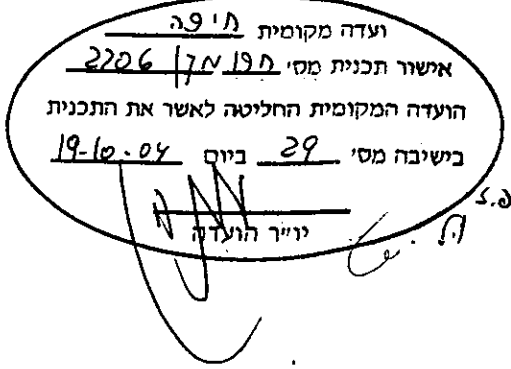 ועדה מקומית חיפה
אישור תכנית מס' חפ/מק/2206
הועדה המקומית החליטה לאשר את התכנית
בישיבה מס' 29 ביום 19-10-04
יו"ר הועדה